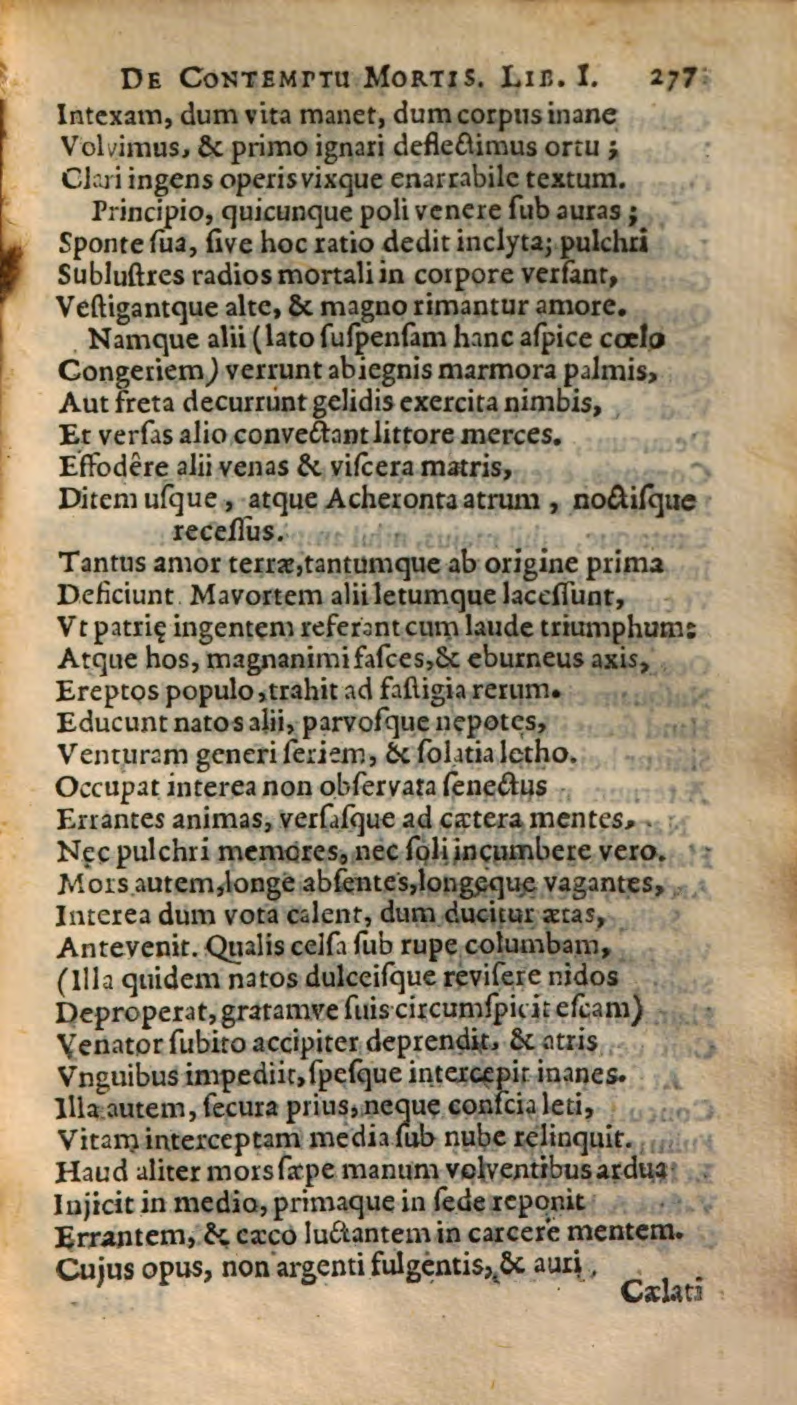 DE CONTEMPTU MORTIS. LIB. I. 277
Intexam, dum vita manet, dum corpus inane
Volvimus, & primo ignari deflectimus ortu ;
Clari ingens operis vixque enarrabile textum.
Principio, quicunque poli venere ſub auras ;
Sponte ſua, ſive hoc ratio dedit inclyta; pulchri
Subluſtres radios mortali in corpore verſant,
Veſtigantque alte, & magno rimantur amore.
Namque alii (lato ſuſpenſam hanc aſpice cœlo
Congeriem) verrunt abiegnis marmora palmis,
Aut freta decurrunt gelidis exercita nimbis,
Et verſas alio convectant littore merces.
Effodêre alii venas & viſcera matris,
Ditem uſque , atque Acheronta atrum , noctiſque
receſſus.
Tantus amor terræ,tantumque ab origine prima
Deficiunt Mavortem alii letumque laceſſunt,
Vt patrię ingentem referant cum laude triumphum:
Atque hos, magnanimi faſces,& eburneus axis,
Ereptos populo,trahit ad faſtigia rerum.
Educunt natos alii, parvoſque nepotes,
Venturam generi ſeriem, & ſolatia letho.
Occupat interea non obſervata ſenectus
Errantes animas, verſaſque ad cætera mentes,
Nec pulchri memores, nec ſoli incumbere vero.
Mors autem,longe abſentes,longeque vagantes,
Interea dum vota calent, dum ducitur ætas,
Antevenit. Qualis celſa ſub rupe columbam,
(Illa quidem natos dulceiſque reviſere nidos
Deproperat, gratamve ſuis circumſpicit eſcam)
Venator ſubito accipiter deprendit, & atris
Vnguibus impediit,ſpeſque intercepit inanes.
Illa autem, ſecura prius, neque conſcia leti,
Vitam interceptam media ſub nube relinquit.
Haud aliter mors ſæpe manum volventibus ardua
Injicit in medio, primaque in ſede reponit
Errantem, & cæco luctantem in carcere mentem.
Cujus opus, non argenti fulgentis, & auri,
Cælati